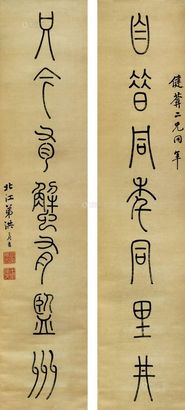 健葊二兄同年
自昔同年同里井
只今有蟹有監州
北江弟洪亮吉